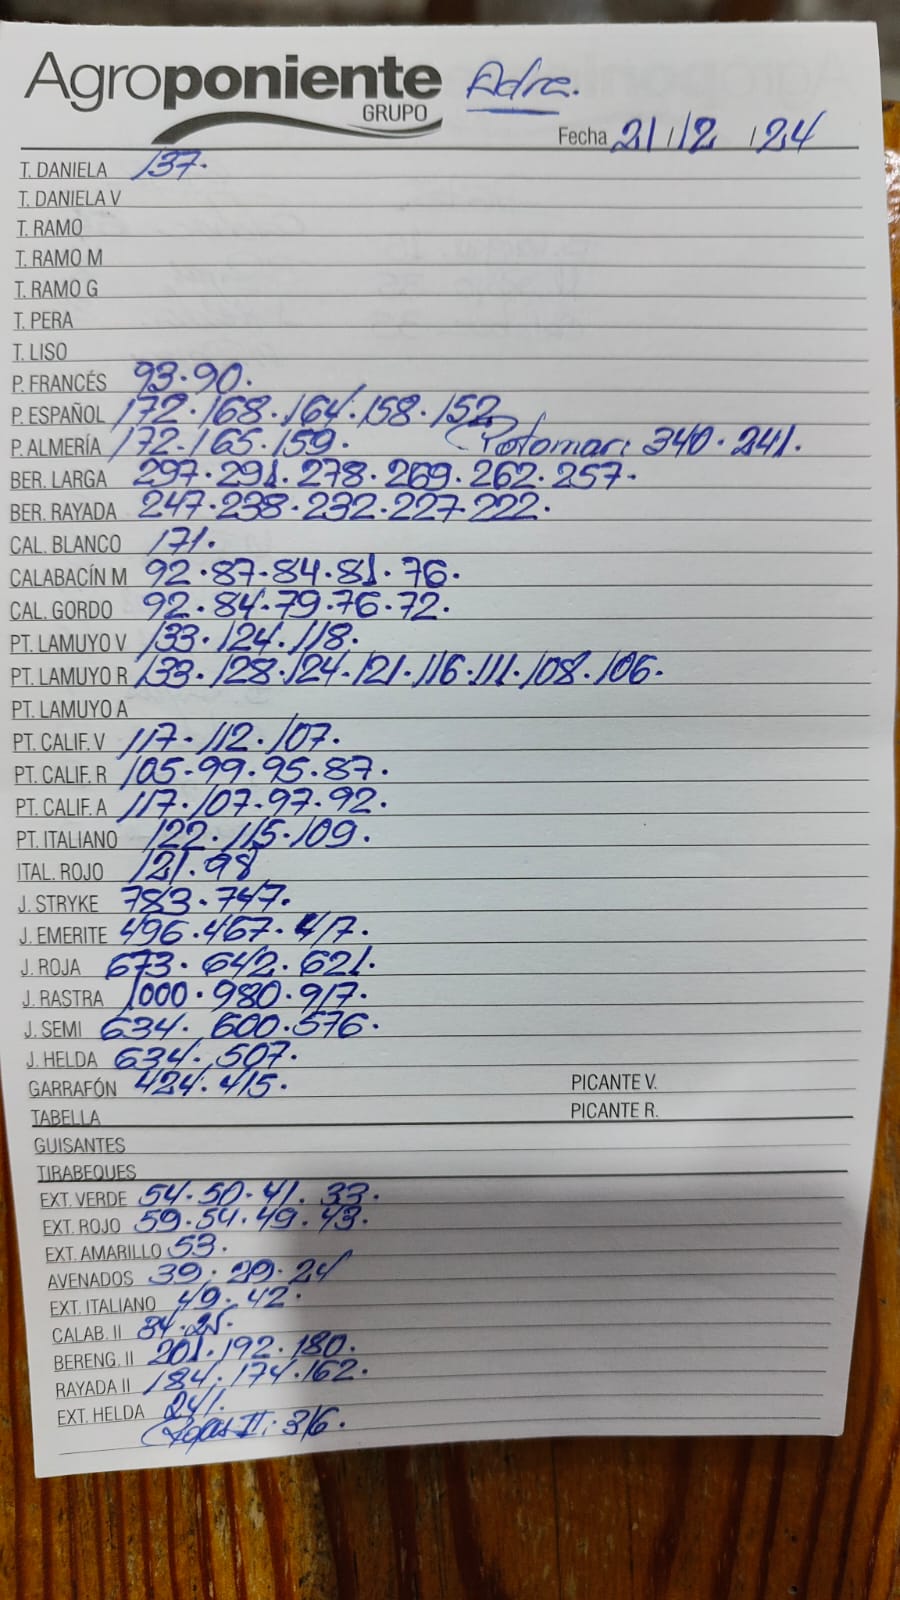 Agroponiente Adra.
GRUPO
Fecha 21/12/24
T. DANIELA 137.
T. DANIELA V
T. RAMO
T. RAMO M
T. RAMO G
T. PERA
T. LISO
P. FRANCÉS 93.90.
P. ESPAÑOL 172.168.164.158.152
P. ALMERÍA 172.165.159. (Potomar: 340.241.
BER. LARGA 297.291.278.269.262.257.
BER. RAYADA 247.238.232.227.222.
CAL. BLANCO 171.
CALABACÍN M 92.87.84.81.76.
CAL. GORDO 92.84.79.76.72.
PT. LAMUYO V 133.124.118.
PT. LAMUYO R 133.128.124.121.116.111.108.106.
PT. LAMUYO A
PT. CALIF. V 117.112.107.
PT. CALIF. R 105.99.95.87.
PT. CALIF. A 117.107.97.92.
PT. ITALIANO 122.115.109.
ITAL. ROJO 121.98
J. STRYKE 783.747.
J. EMERITE 496.467.417.
J. ROJA 673.642.621.
J. RASTRA 1000.980.917.
J. SEMI 634.600.576.
J. HELDA 634.507.
GARRAFÓN 424.415. PICANTE V.
TABELLA PICANTE R.
GUISANTES
TIRABEQUES
EXT. VERDE 54.50.41.33.
EXT. ROJO 59.54.49.43.
EXT. AMARILLO 53.
AVENADOS 39.29.24
EXT. ITALIANO 49.42.
CALAB. II 34.25.
BERENG. II 201.192.180.
RAYADA II 184.174.162.
EXT. HELDA 241.
(Rojas II: 316.